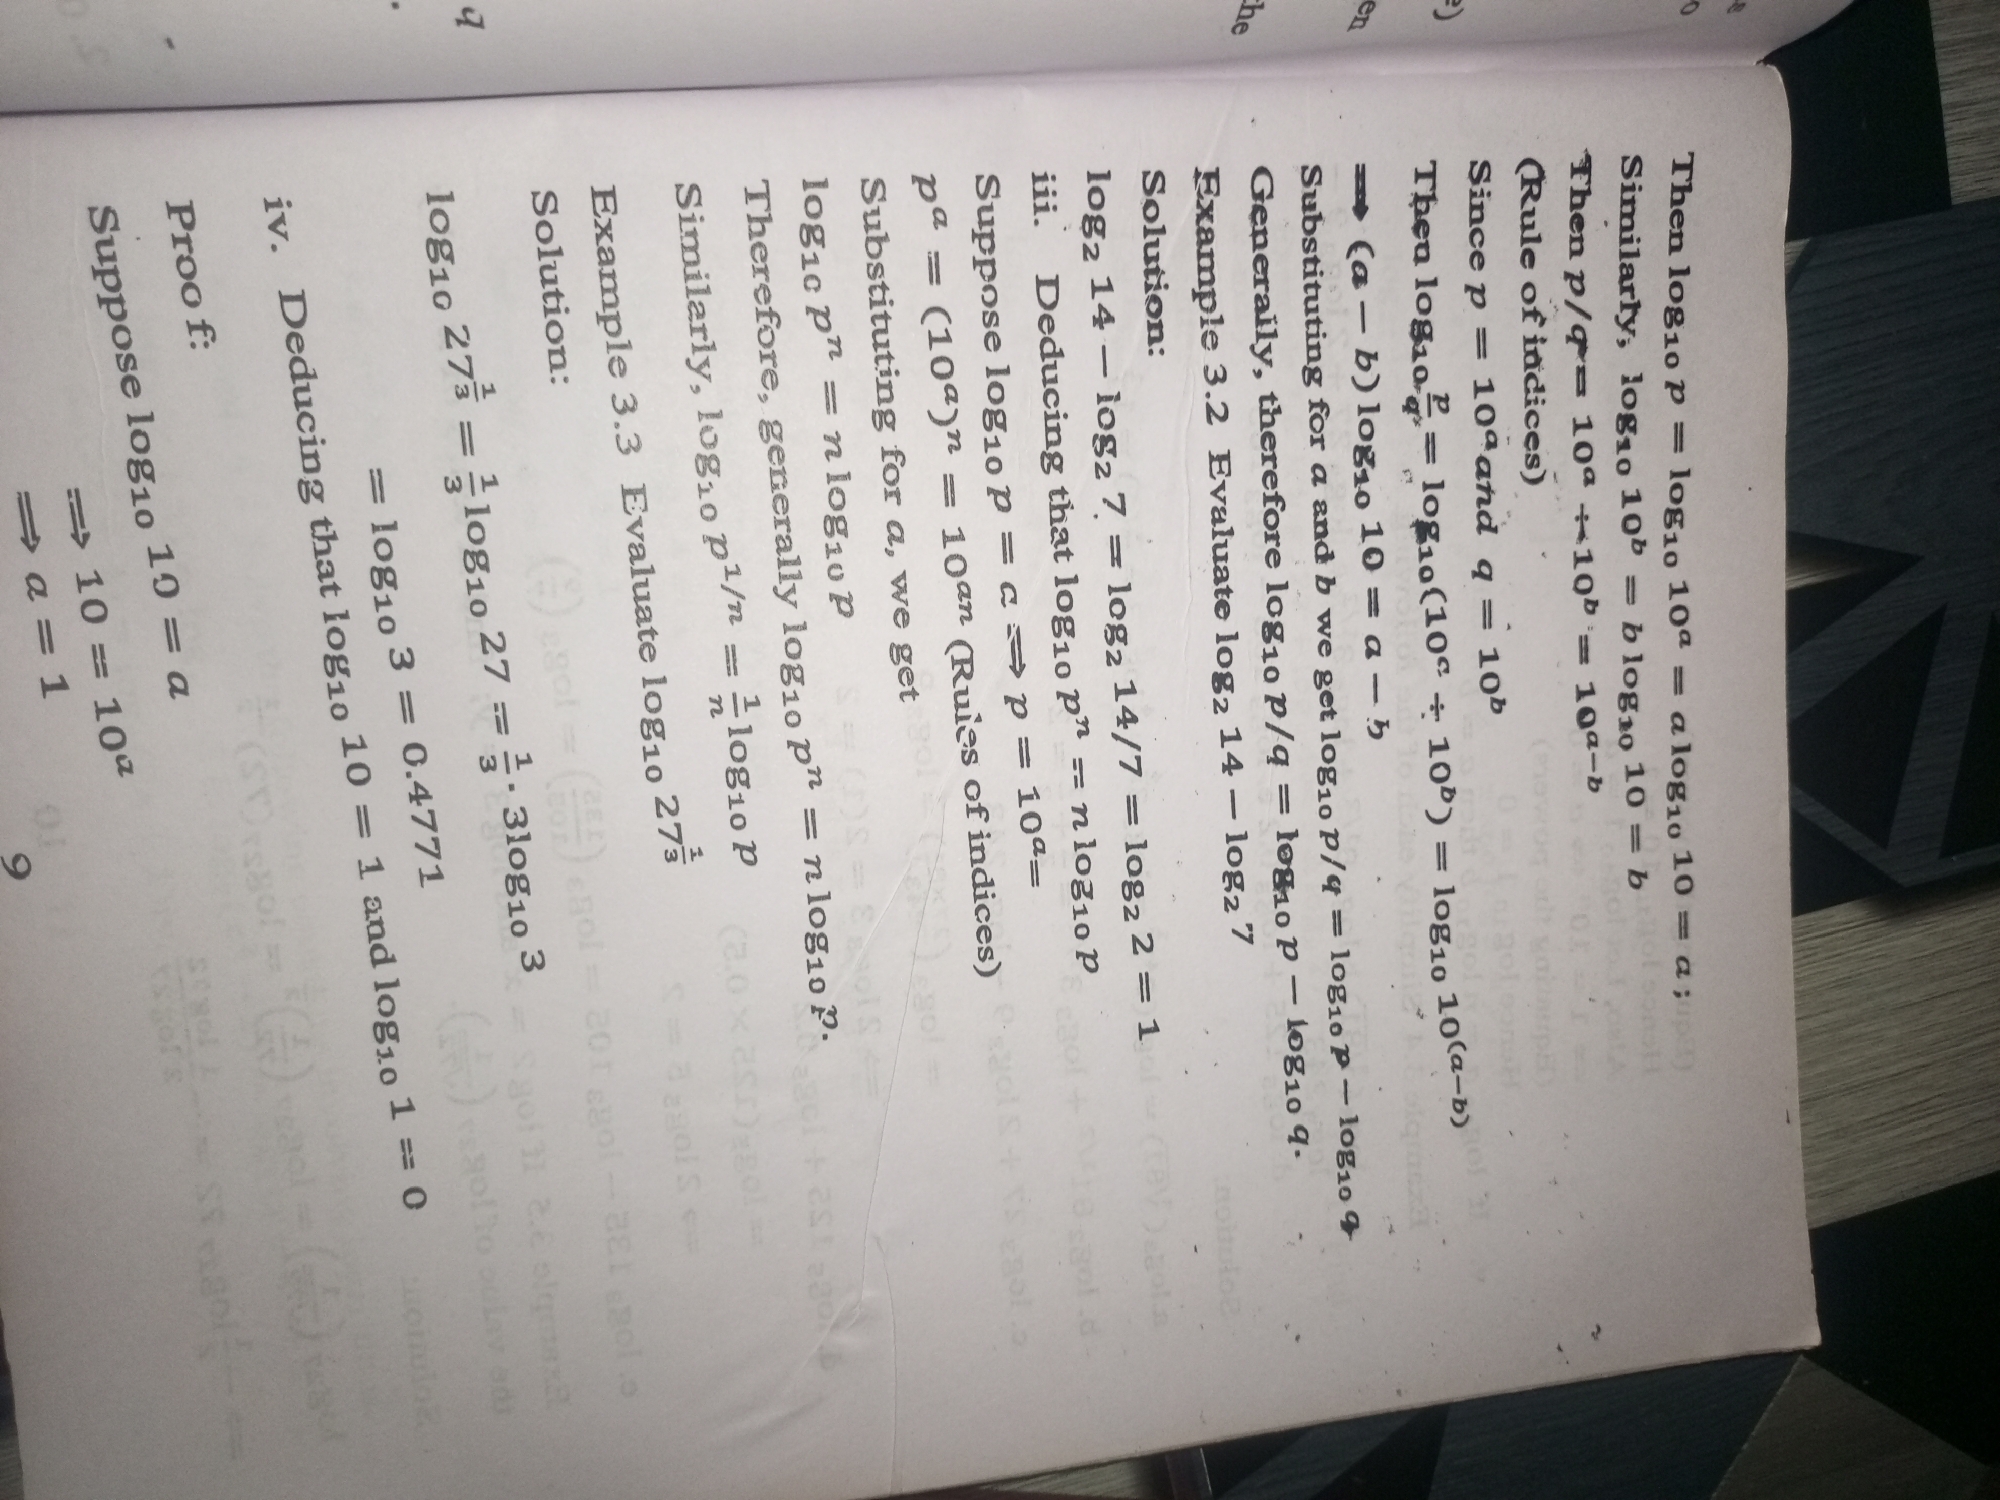 Then log₁₀ p = log₁₀ 10ᵃ = a log₁₀ 10 = a;
Similarly, log₁₀ 10ᵇ = b log₁₀ 10 = b
Then p/q = 10ᵃ ÷ 10ᵇ = 10ᵃ⁻ᵇ
(Rule of indices)
Since p = 10ᵃ and q = 10ᵇ
Then log₁₀ p/q = log₁₀(10ᵃ ÷ 10ᵇ) = log₁₀ 10⁽ᵃ⁻ᵇ⁾
⟹ (a − b) log₁₀ 10 = a − b
Substituting for a and b we get log₁₀ p/q = log₁₀ p − log₁₀ q
Generally, therefore log₁₀ p/q = log₁₀ p − log₁₀ q.
Example 3.2 Evaluate log₂ 14 − log₂ 7
Solution:
log₂ 14 − log₂ 7 = log₂ 14/7 = log₂ 2 = 1
iii. Deducing that log₁₀ pⁿ = n log₁₀ p
Suppose log₁₀ p = a ⟹ p = 10ᵃ=
pᵃ = (10ᵃ)ⁿ = 10ᵃⁿ (Rules of indices)
Substituting for a, we get
log₁₀ pⁿ = n log₁₀ p
Therefore, generally log₁₀ pⁿ = n log₁₀ p.
Similarly, log₁₀ p^1/n = 1/n log₁₀ p
Example 3.3 Evaluate log₁₀ 27^1/3
Solution:
log₁₀ 27^1/3 = 1/3 log₁₀ 27 = 1/3 . 3log₁₀ 3
= log₁₀ 3 = 0.4771
iv. Deducing that log₁₀ 10 = 1 and log₁₀ 1 = 0
Proof:
Suppose log₁₀ 10 = a
⟹ 10 = 10ᵃ
⟹ a = 1
9